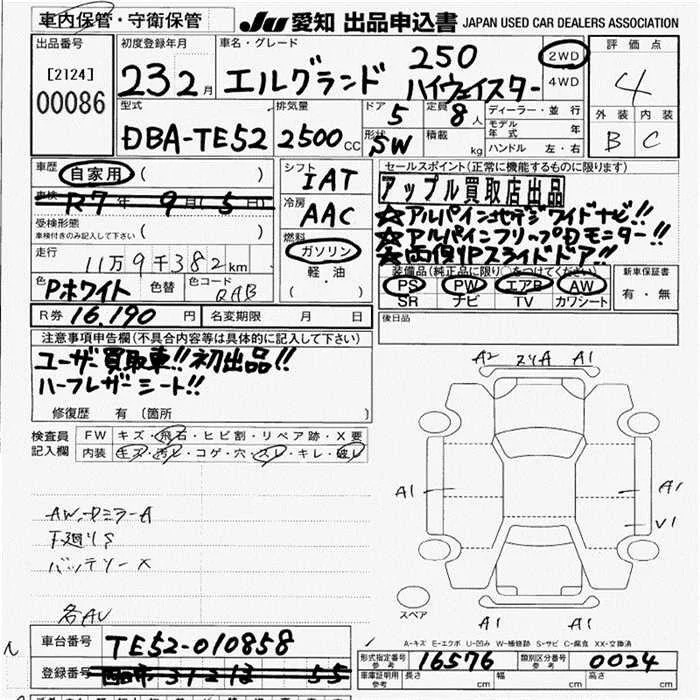 車内保管・守衛保管
JU 愛知 出品申込書 JAPAN USED CAR DEALERS ASSOCIATION
出品番号
[2124]
00086
初度登録年月
23 2月
車名・グレード
エルグランド 250 ハイウェイスター
2WD
4WD
評価点
4
外装 内装
B C
型式
DBA-TE52
排気量
2500cc
ドア 5
形状 SW
定員 8人
積載 kg
ディーラー・並行
モデル年式 年
ハンドル 左・右
車歴 自家用 ( )
車検 R7年 9月(5日)
受検形態
車検付きのみ記入して下さい ( )
走行 11万9千382km
色 Pホワイト 色替 色コード QAB
シフト IAT
冷房 AAC
燃料
ガソリン
軽油
( )
セールスポイント(正常に機能するものに限ります)
アップル買取店出品
☆アルパイン地デジワイドナビ!!
☆アルパインフリップDモニター!!
☆両側Pスライドドア!!
装備品(純正品に限り○をつけてください)
PS PW エアB AW
SR ナビ TV カワシート
新車保証書
有・無
R券 16,190円 名変期限 月 日
後日品
注意事項申告欄(不具合内容等は具体的に記入して下さい)
ユーザー買取車!!初出品!!
ハーフレザーシート!!
修復歴 有 (箇所 )
検査員記入欄
FW キズ・飛石・ヒビ割・リペア跡・X要
内装 キズ・汚レ・コゲ・穴・スレ・キレ・破レ
AW、ドミラーA
下廻りS
バッテリーX
各AU
A2 スリA A1
A1 A1
V1
A1 A1
スペア
A-キズ E-エクボ U-凹み W-補修跡 S-サビ C-腐食 XX-交換済
車台番号 TE52-010858
登録番号 四日市 312 は 55
型式指定番号 参考 16576
類別区分番号 参考 0024
車庫証明用 参考 長さ cm 幅 cm 高さ cm